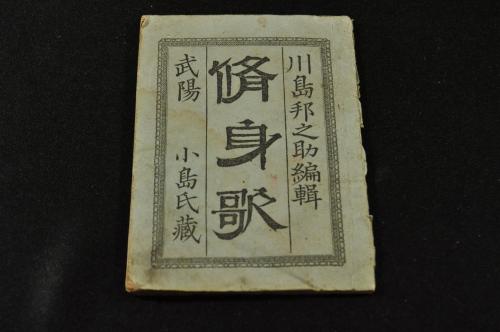 川島邦之助編輯
脩身歌
武陽 小島氏藏